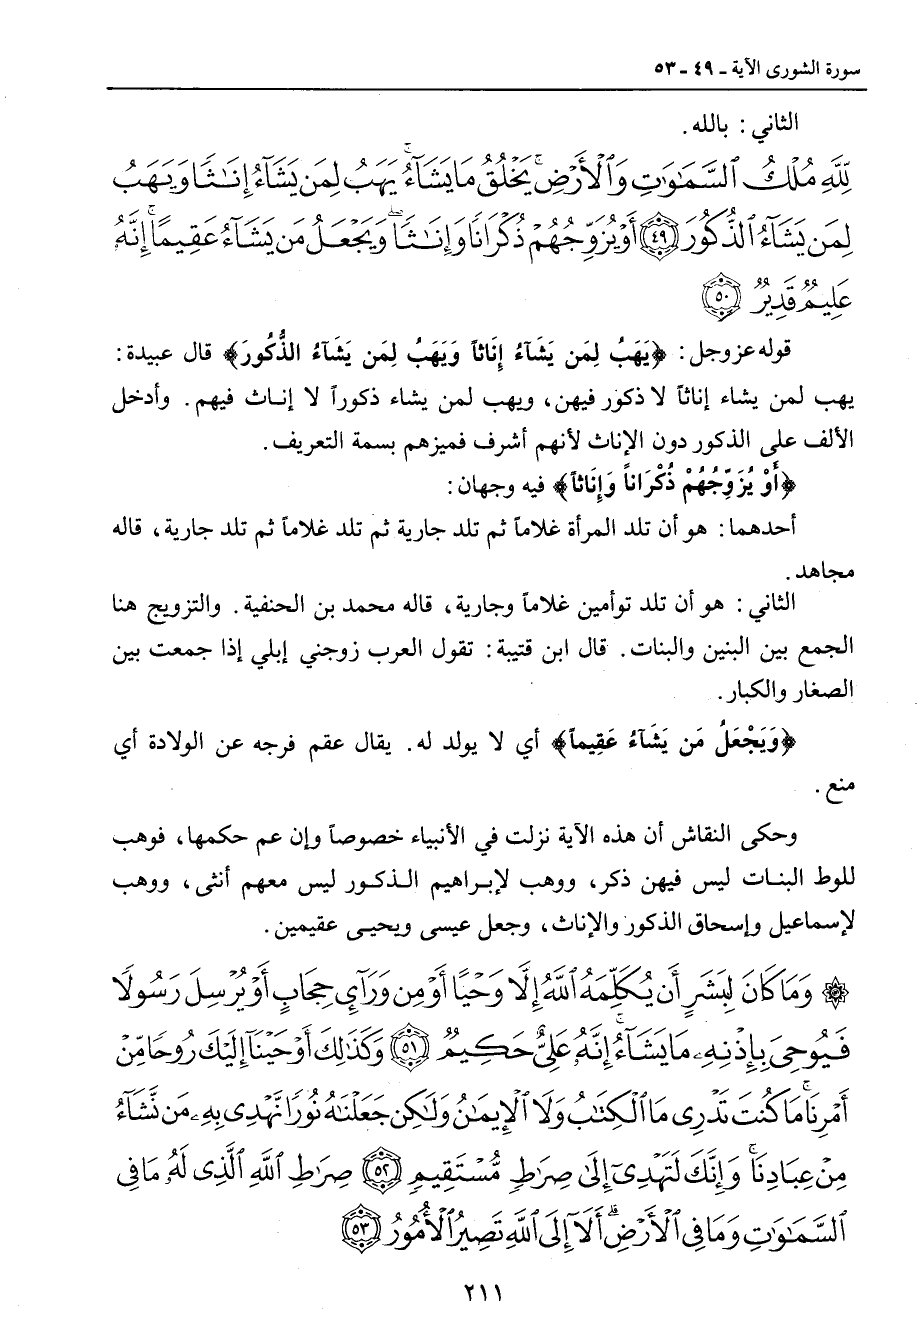 سورة الشورى الآية ـ ٤٩ ـ ٥٣
الثاني : بالله .
لِّلَّهِ مُلْكُ ٱلسَّمَٰوَٰتِ وَٱلْأَرْضِ ۚ يَخْلُقُ مَا يَشَآءُ ۚ يَهَبُ لِمَن يَشَآءُ إِنَٰثًا وَيَهَبُ
لِمَن يَشَآءُ ٱلذُّكُورَ ﴿٤٩﴾ أَوْ يُزَوِّجُهُمْ ذُكْرَانًا وَإِنَٰثًا ۖ وَيَجْعَلُ مَن يَشَآءُ عَقِيمًا ۚ إِنَّهُۥ
عَلِيمٌ قَدِيرٌ ﴿٥٠﴾
قوله عز وجل : ﴿يَهَبُ لِمَن يَشَآءُ إِنَاثاً وَيَهَبُ لِمَن يَشَآءُ الذُّكُورَ﴾ قال عبيدة :
يهب لمن يشاء إناثاً لا ذكور فيهن ، ويهب لمن يشاء ذكوراً لا إناث فيهم . وأدخل
الألف على الذكور دون الإناث لأنهم أشرف فميزهم بسمة التعريف .
﴿أَوْ يُزَوِّجُهُمْ ذُكْرَاناً وَإِنَاثاً﴾ فيه وجهان :
أحدهما : هو أن تلد المرأة غلاماً ثم تلد جارية ثم تلد غلاماً ثم تلد جارية ، قاله
مجاهد .
الثاني : هو أن تلد توأمين غلاماً وجارية ، قاله محمد بن الحنفية . والتزويج هنا
الجمع بين البنين والبنات . قال ابن قتيبة : تقول العرب زوجني إبلي إذا جمعت بين
الصغار والكبار .
﴿وَيَجْعَلُ مَن يَشَآءُ عَقِيماً﴾ أي لا يولد له . يقال عقم فرجه عن الولادة أي
منع .
وحكى النقاش أن هذه الآية نزلت في الأنبياء خصوصاً وإن عم حكمها ، فوهب
للوط البنات ليس فيهن ذكر ، ووهب لإبراهيم الذكور ليس معهم أنثى ، ووهب
لإسماعيل وإسحاق الذكور والإناث ، وجعل عيسى ويحيى عقيمين .
۞ وَمَا كَانَ لِبَشَرٍ أَن يُكَلِّمَهُ ٱللَّهُ إِلَّا وَحْيًا أَوْ مِن وَرَآئِ حِجَابٍ أَوْ يُرْسِلَ رَسُولًا
فَيُوحِىَ بِإِذْنِهِۦ مَا يَشَآءُ ۚ إِنَّهُۥ عَلِىٌّ حَكِيمٌ ﴿٥١﴾ وَكَذَٰلِكَ أَوْحَيْنَآ إِلَيْكَ رُوحًا مِّنْ
أَمْرِنَا ۚ مَا كُنتَ تَدْرِى مَا ٱلْكِتَٰبُ وَلَا ٱلْإِيمَٰنُ وَلَٰكِن جَعَلْنَٰهُ نُورًا نَّهْدِى بِهِۦ مَن نَّشَآءُ
مِنْ عِبَادِنَا ۚ وَإِنَّكَ لَتَهْدِىٓ إِلَىٰ صِرَٰطٍ مُّسْتَقِيمٍ ﴿٥٢﴾ صِرَٰطِ ٱللَّهِ ٱلَّذِى لَهُۥ مَا فِى
ٱلسَّمَٰوَٰتِ وَمَا فِى ٱلْأَرْضِ ۗ أَلَآ إِلَى ٱللَّهِ تَصِيرُ ٱلْأُمُورُ ﴿٥٣﴾
٢١١